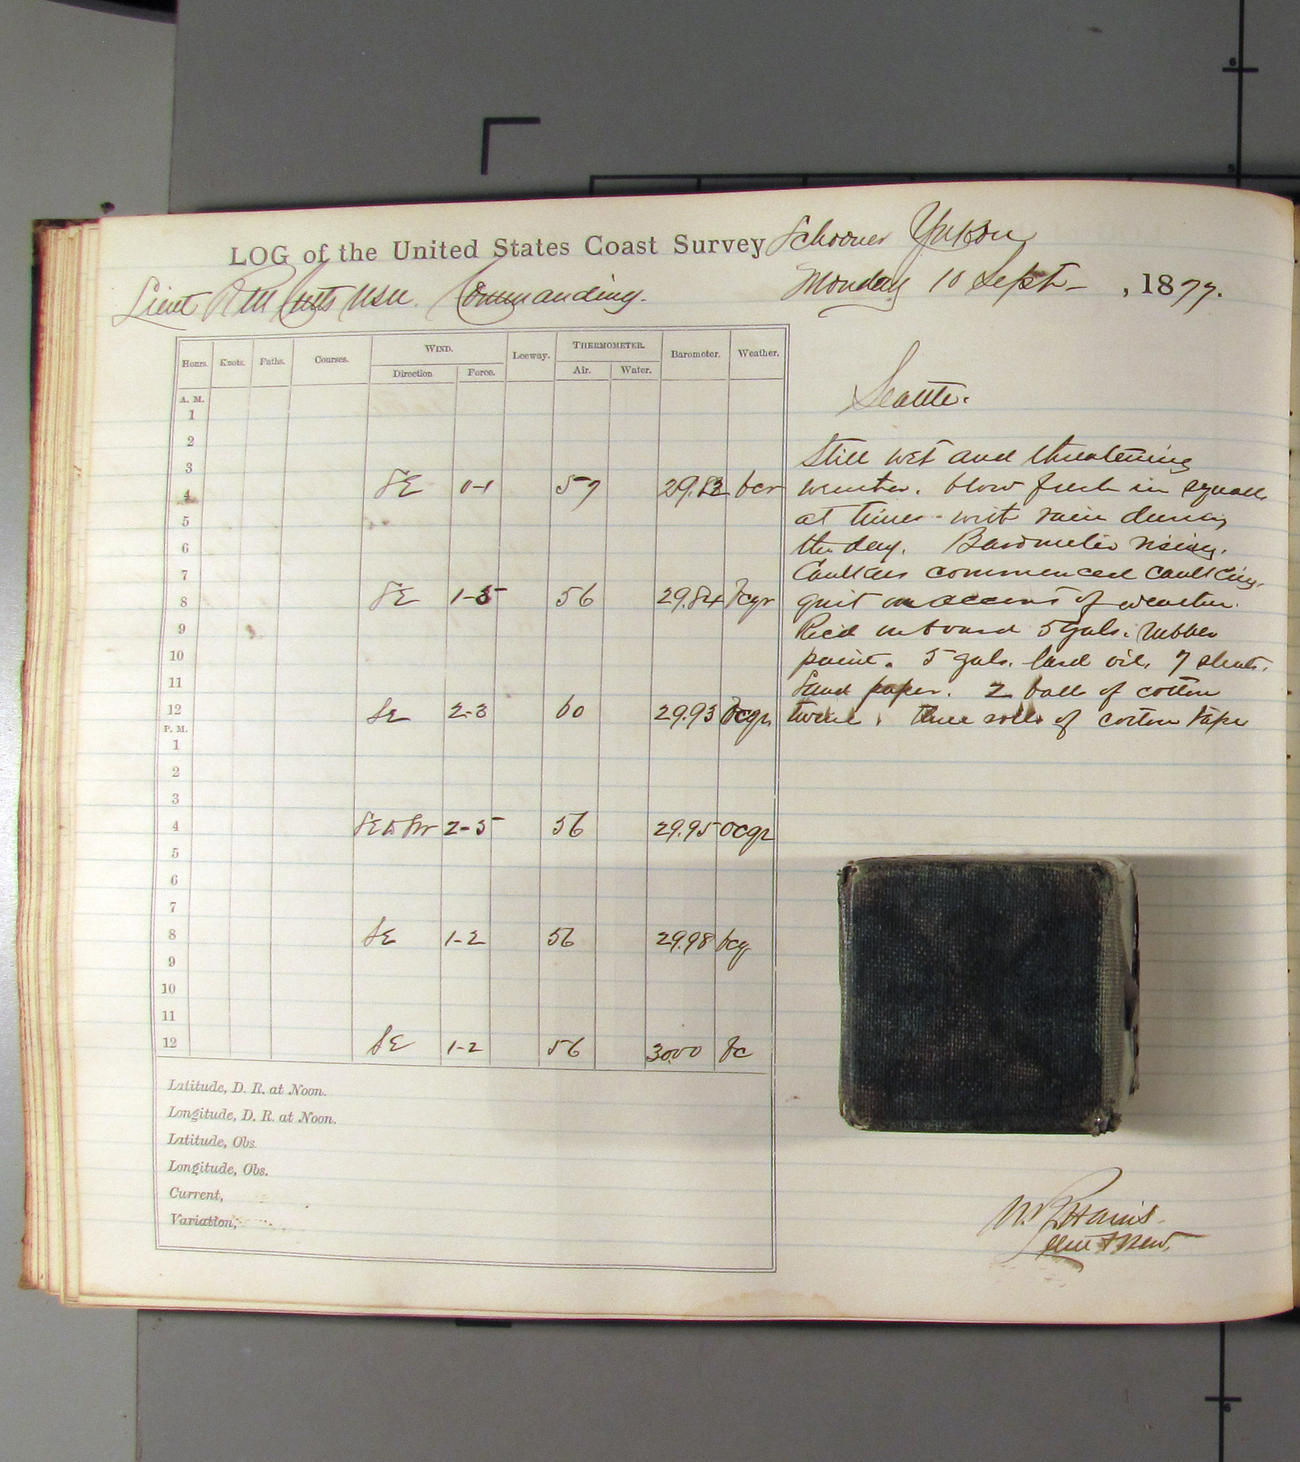 LOG of the United States Coast Survey Schooner Yukon
Lieut R M Cutts USN. Commanding. Monday 10 Sept- , 1877.
Hours. Knots. Faths. Courses. WIND. Leeway. THERMOMETER. Barometer. Weather.
Direction Force. Air. Water.
A. M.
1
2
3
4 SE 0-1 57 29.82 bcr
5
6
7
8 SE 1-5 56 29.84 bcqr
9
10
11
12 SE 2-3 60 29.93 bcqr
P. M.
1
2
3
4 SE to SW 2-5 56 29.95 ocqr
5
6
7
8 SE 1-2 56 29.98 bcq
9
10
11
12 SE 1-2 56 30.00 bc
Latitude, D. R. at Noon.
Longitude, D. R. at Noon.
Latitude, Obs.
Longitude, Obs.
Current,
Variation,
Seattle.
Still wet and threatening
weather. blow fresh in squalls
at times - with rain during
the day. Barometer rising.
Caulkers commenced caulking.
quit on account of weather.
Rec'd on board 5 gals. rubber
paint. 5 gals. lard oil, 7 sheets.
Sand paper. 2 balls of cotton
twine, three rolls of cotton tape
Harris